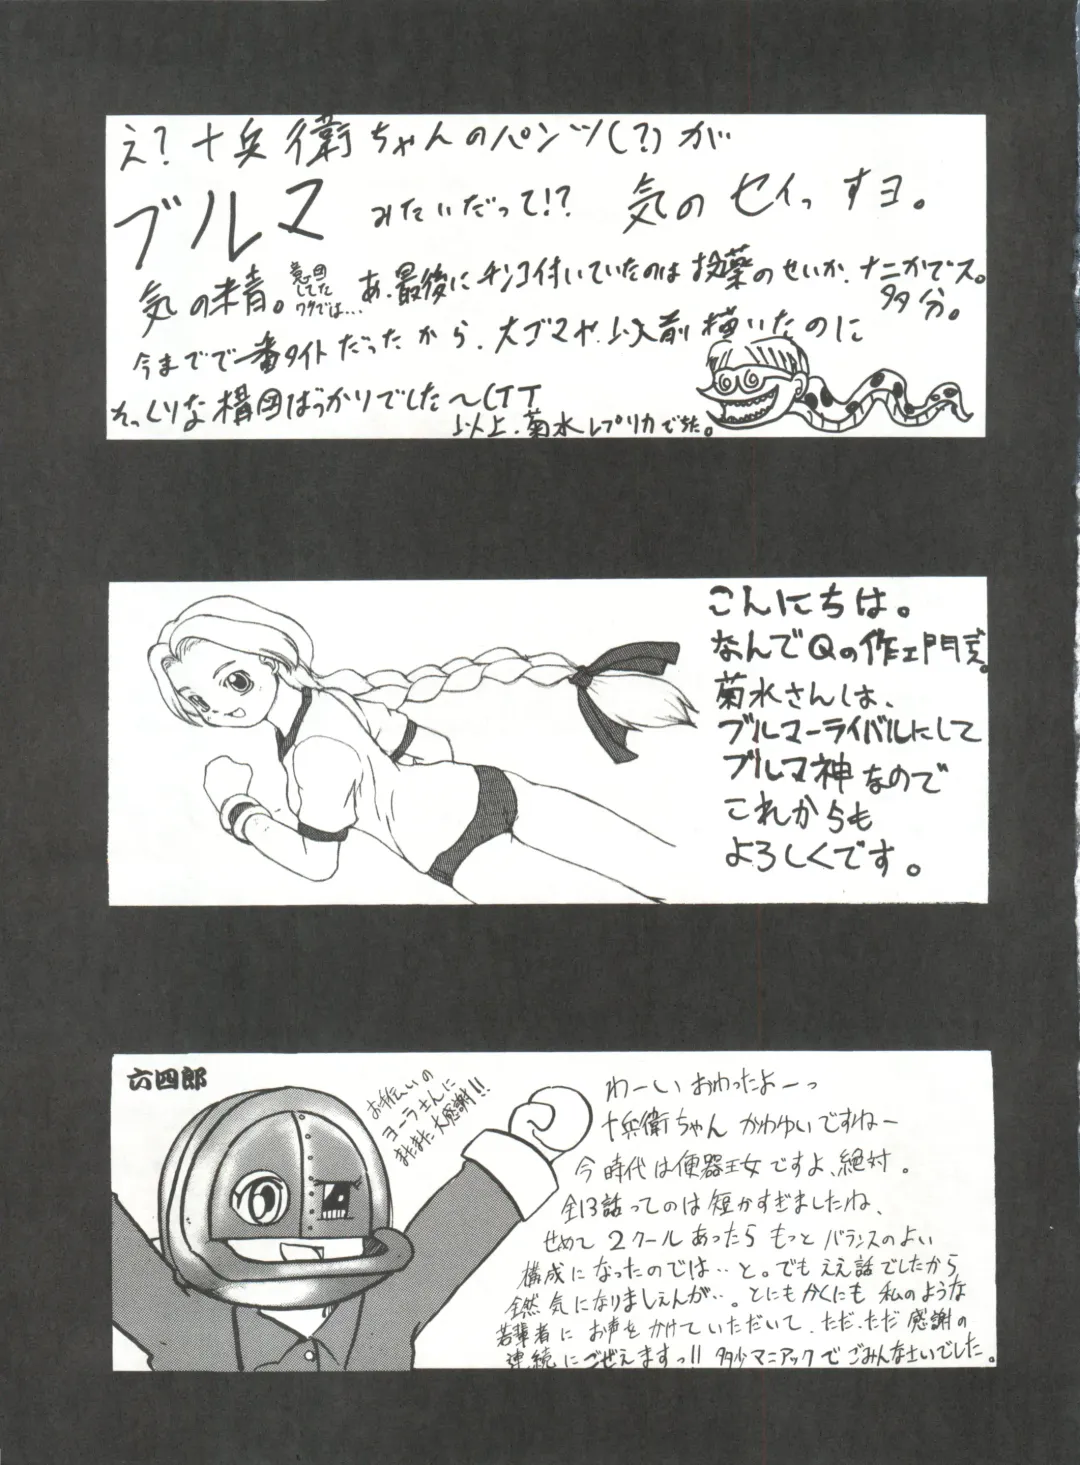 え？十兵衛ちゃんのパンツ(？)が
ブルマ みたいだって!？ 気のセイっすヨ。
気の精。意図してたワケでは… あ、最後にチンコ付いていたのはお薬のせいか、ナニかでス。多分。
今までで一番タイトだったから、大ゴマや、以前描いたのに
そっくりな構図ばっかりでした〜(TT
以上、菊水レプリカでした。
こんにちは。
なんでQの作工門式。
菊水さんは、
ブルマーライバルにして
ブルマ神なので
これからも
よろしくです。
六四郎
お手伝いの
ヨーラさんに
またまた大感謝!!
わーい おわったよーっ
十兵衛ちゃん かわゆいですねー
今時代は便器王女ですよ、絶対。
全13話ってのは短かすぎましたね、
せめて2クールあったらもっとバランスのよい
構成になったのでは‥と。でもええ話でしたから
全然気になりましぇんが‥。とにもかくにも私のような
若輩者にお声をかけていただいて、ただ、ただ感謝の
連続にごぜえますっ!! 多少マニアックでごみんなさいでした。